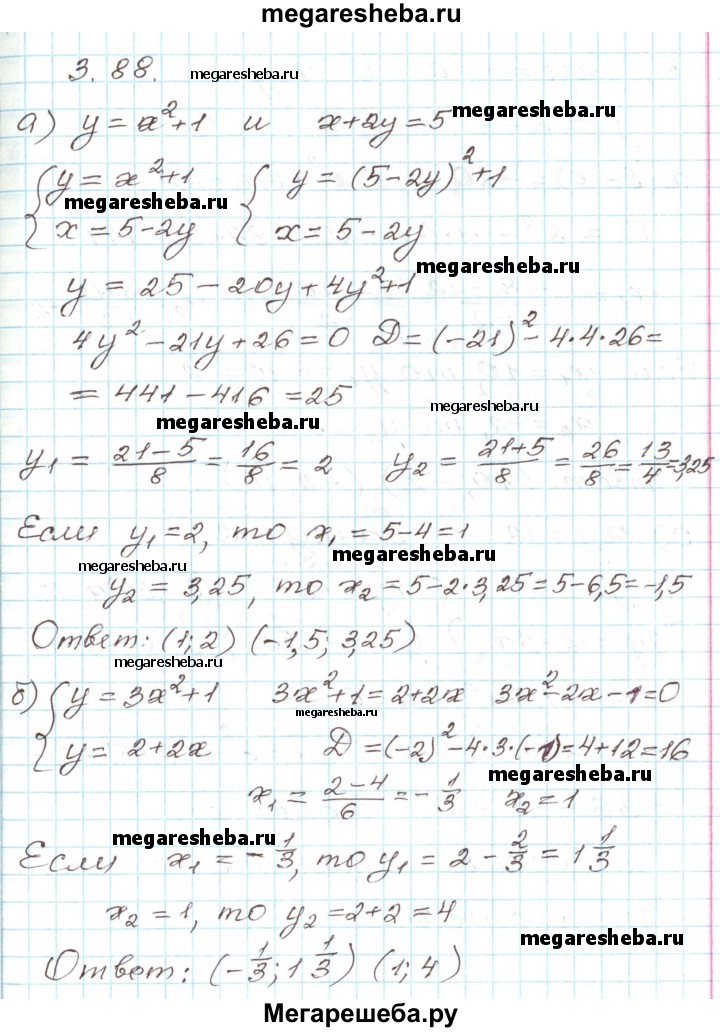 megaresheba.ru
3.88. megaresheba.ru
а) y = x²+1 и x+2y = 5 megaresheba.ru
{ y = x²+1 { y = (5-2y)²+1
megaresheba.ru
{ x = 5-2y { x = 5-2y
y = 25 - 20y + 4y²+1 megaresheba.ru
4y² - 21y + 26 = 0 D = (-21)² - 4·4·26 =
= 441 - 416 = 25 megaresheba.ru
megaresheba.ru
y₁ = (21-5)/8 = 16/8 = 2 y₂ = (21+5)/8 = 26/8 = 13/4 = 3,25
Если y₁ = 2, то x₁ = 5-4 = 1
megaresheba.ru megaresheba.ru
y₂ = 3,25, то x₂ = 5-2·3,25 = 5-6,5 = -1,5
Ответ: (1; 2) (-1,5; 3,25)
megaresheba.ru
б) { y = 3x²+1 3x²+1 = 2+2x 3x²-2x-1 = 0
megaresheba.ru
{ y = 2+2x D = (-2)² - 4·3·(-1) = 4+12 = 16
megaresheba.ru
x₁ = (2-4)/6 = -1/3 x₂ = 1
megaresheba.ru
Если x₁ = -1/3, то y₁ = 2 - 2/3 = 1 1/3
x₂ = 1, то y₂ = 2+2 = 4
megaresheba.ru
Ответ: (-1/3; 1 1/3) (1; 4)
Мегарешеба.ру